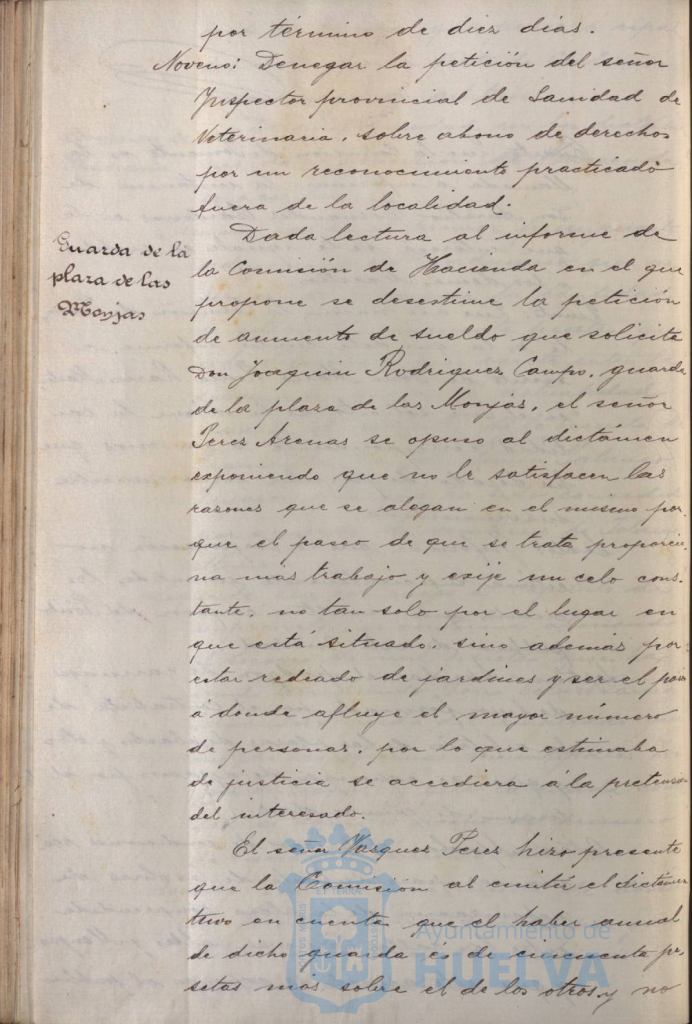 por término de diez días.
Noveno: Denegar la petición del señor
Inspector provincial de Sanidad de
Veterinaria, sobre abono de derechos
por un reconocimiento practicado
fuera de la localidad.
Guarda de la
plaza de las
Monjas
Dada lectura al informe de
la Comisión de Hacienda en el que
propone se desestime la petición
de aumento de sueldo que solicita
Don Joaquin Rodriguez Campo, guarda
de la plaza de las Monjas, el señor
Perez Arenas se opuso al dictámen
exponiendo que no le satisfacen las
razones que se alegan en el mismo por-
que el paseo de que se trata proporcio-
na mas trabajo y exije un celo cons-
tante, no tan solo por el lugar en
que está situado, sino además por
estar rodeado de jardines y ser el
á donde afluye el mayor número
de personas, por lo que estimaba
de justicia se accediera á la
del interesado.
El señor Vazquez Perez hizo presente
que la Comisión al emitir el dictámen
tuvo en cuenta que el haber anual
de dicho guarda és de cincuenta pe-
setas mas sobre el de los otros y no
Ayuntamiento de
HUELVA